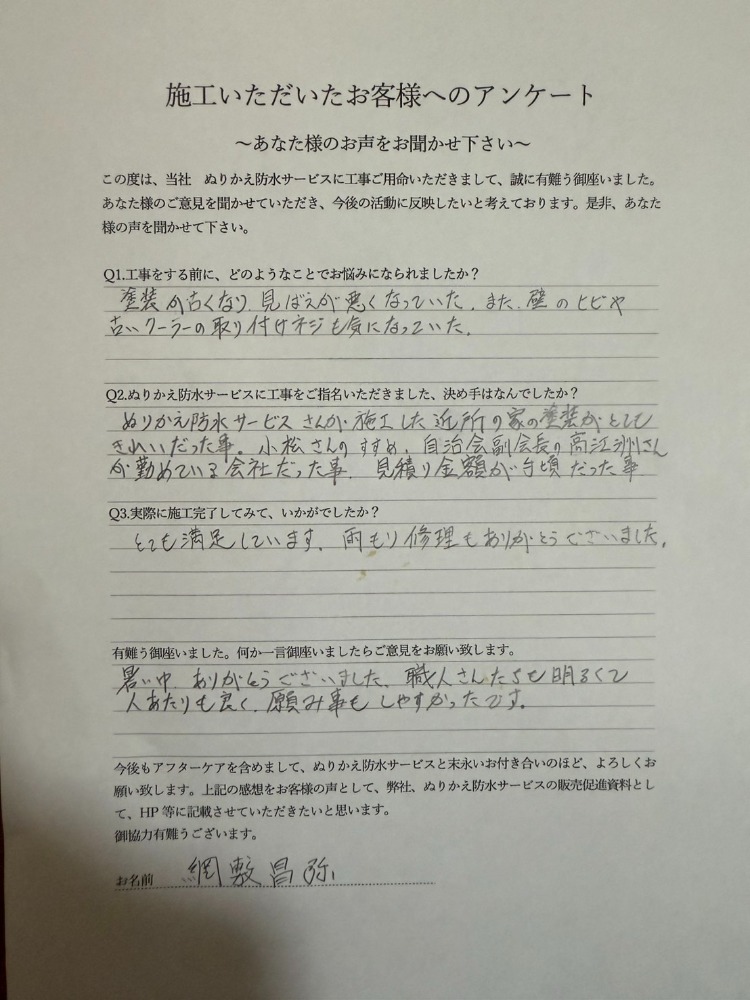 施工いただいたお客様へのアンケート
～あなた様のお声をお聞かせ下さい～
この度は、当社　ぬりかえ防水サービスに工事ご用命いただきまして、誠に有難う御座いました。
あなた様のご意見を聞かせていただき、今後の活動に反映したいと考えております。是非、あなた
様の声を聞かせて下さい。
Q1.工事をする前に、どのようなことでお悩みになられましたか？
塗装が古くなり、見ばえが悪くなっていた。また、壁のヒビや
古いクーラーの取り付けネジも気になっていた。
Q2.ぬりかえ防水サービスに工事をご指名いただきました、決め手はなんでしたか？
ぬりかえ防水サービスさんが施工した近所の家の塗装がとても
きれいだった事。小松さんのすすめ、自治会副会長の高江洲さん
が勤めている会社だった事、見積り金額が手頃だった事
Q3.実際に施工完了してみて、いかがでしたか？
とても満足しています。雨もり修理もありがとうございました。
有難う御座いました。何か一言御座いましたらご意見をお願い致します。
暑い中、ありがとうございました。職人さんたちも明るくて
人あたりも良く、願み事もしやすかったです。
今後もアフターケアを含めまして、ぬりかえ防水サービスと末永いお付き合いのほど、よろしくお
願い致します。上記の感想をお客様の声として、弊社、ぬりかえ防水サービスの販売促進資料とし
て、HP 等に記載させていただきたいと思います。
御協力有難うございます。
お名前　網敷昌弥